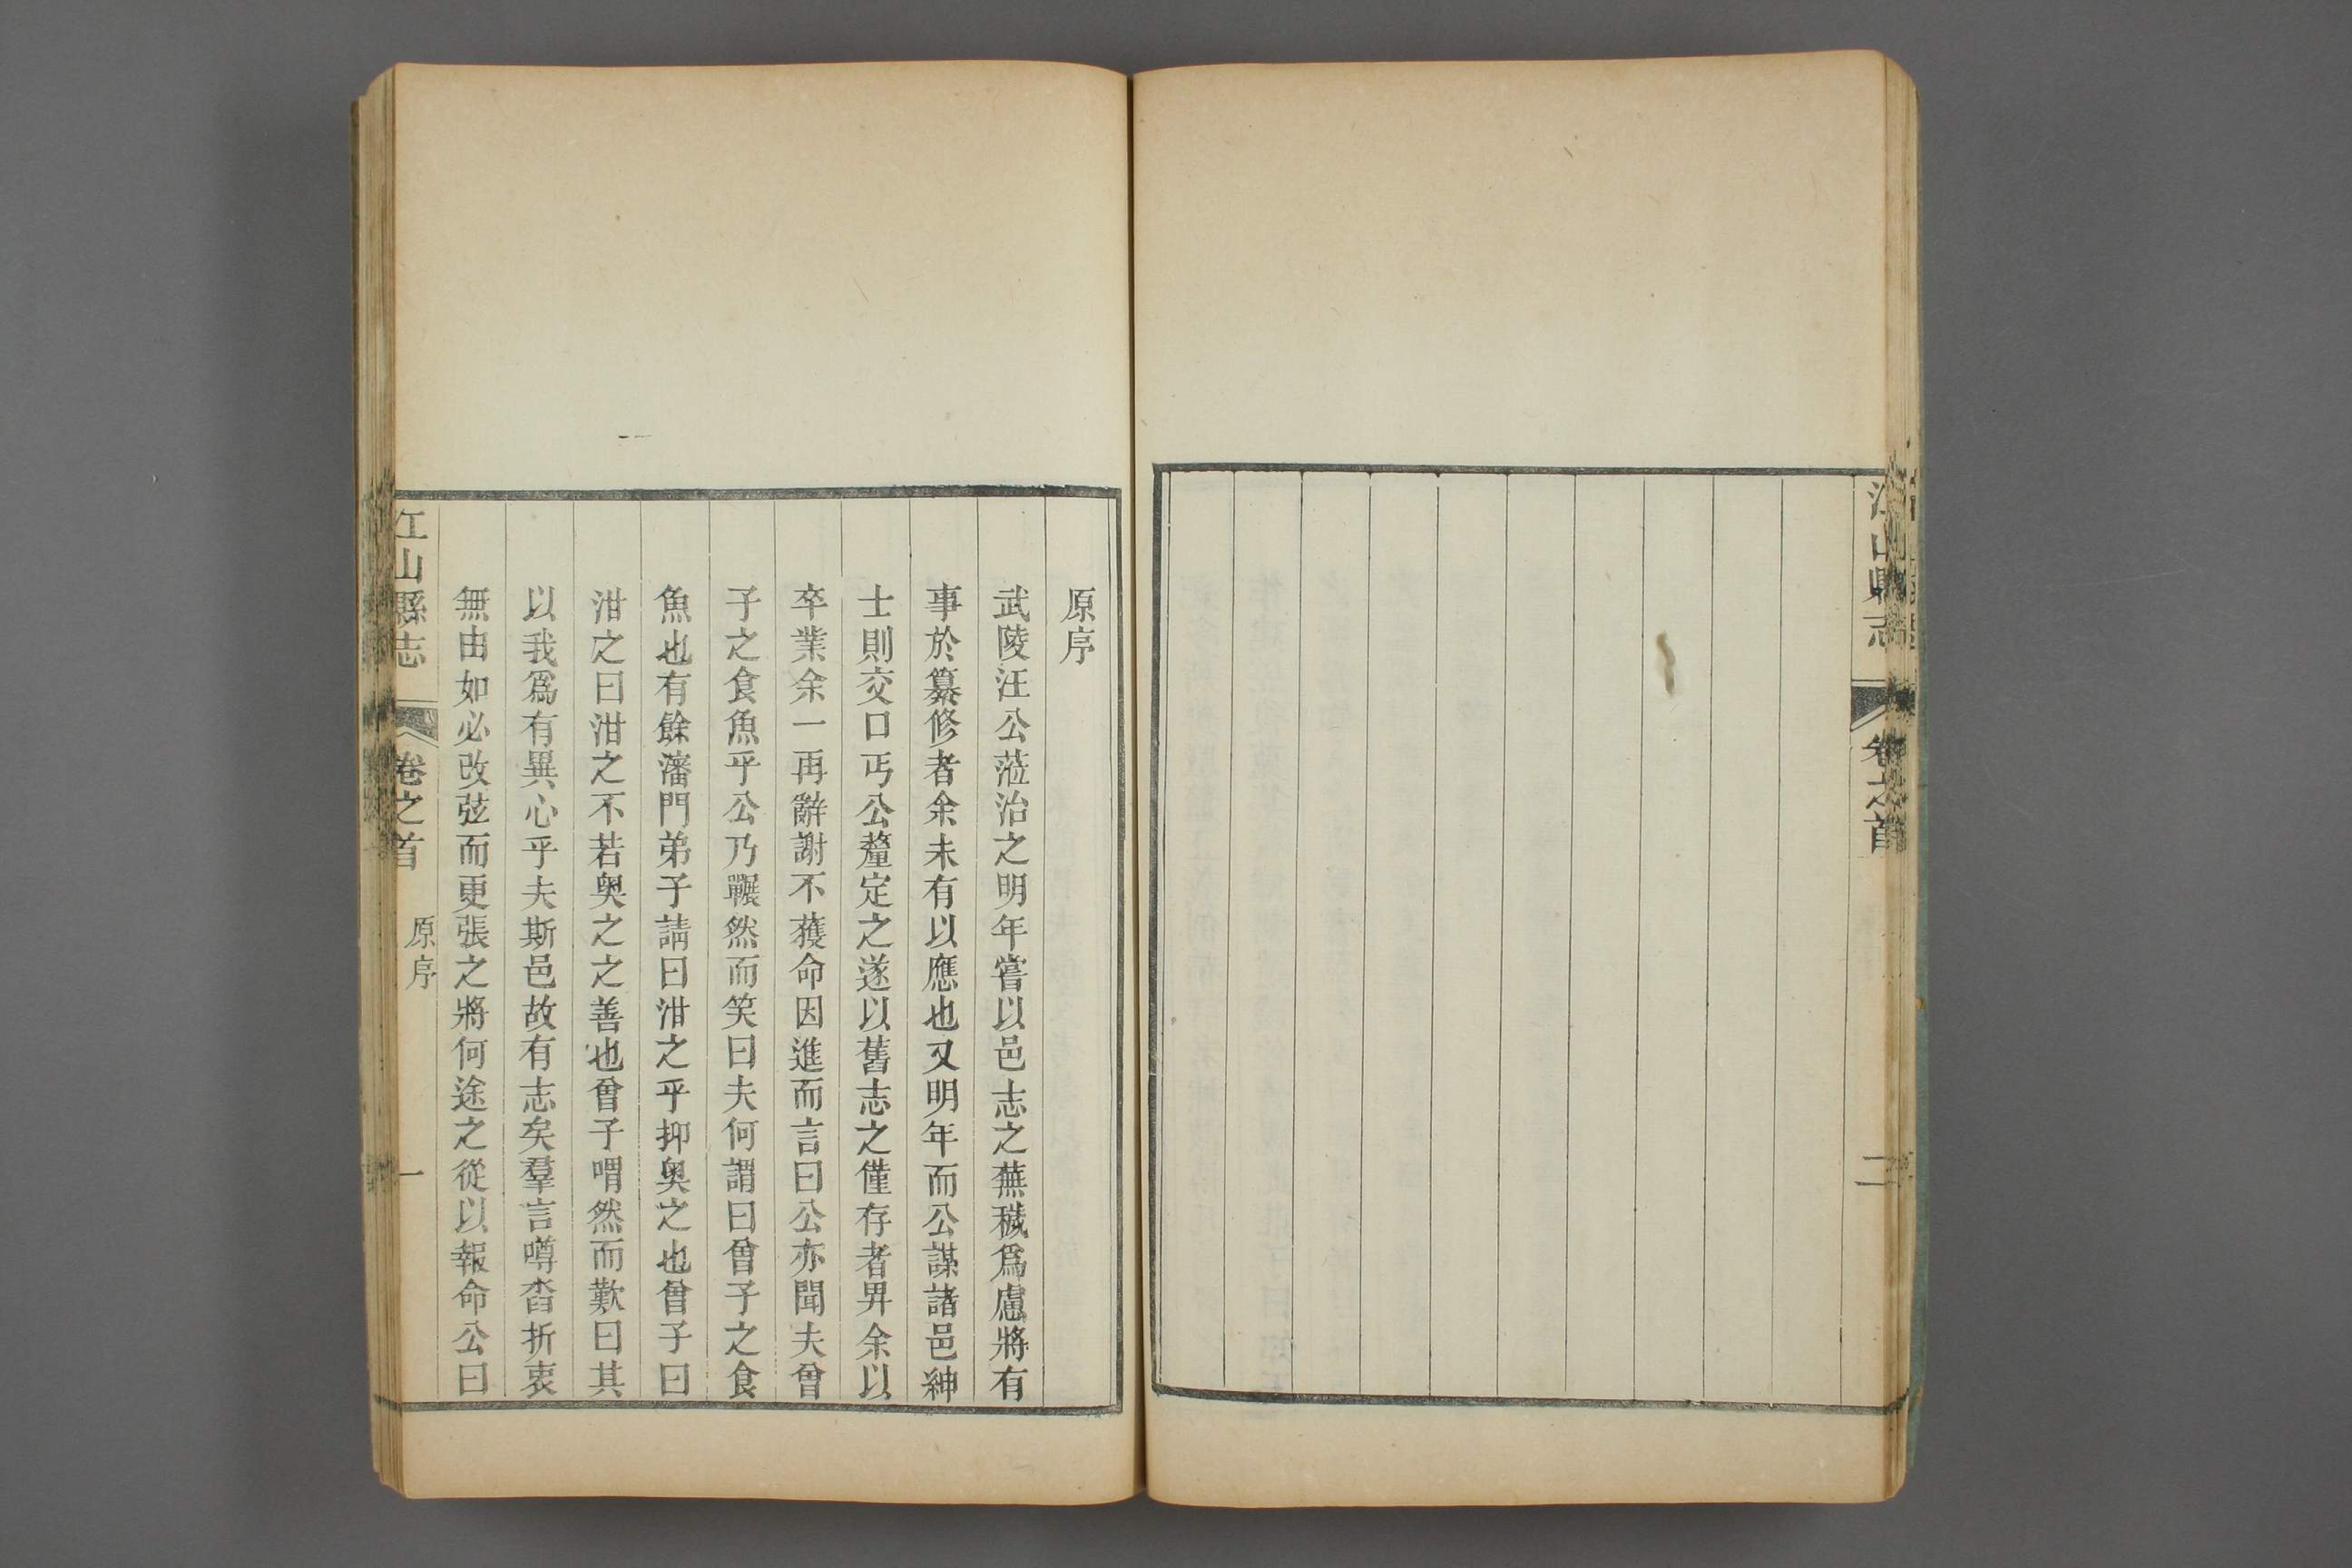 江山縣志
卷之首
二
原序
武陵汪公蒞治之明年嘗以邑志之蕪穢爲慮將有
事於纂修者余未有以應也又明年而公謀諸邑紳
士則交口丐公釐定之遂以舊志之僅存者畀余以
卒業余一再辭謝不獲命因進而言曰公亦聞夫曾
子之食魚乎公乃囅然而笑曰夫何謂曰曾子之食
魚也有餘瀋門弟子請曰泔之乎抑奥之也曾子曰
泔之曰泔之不若奥之之善也曾子喟然而歎曰其
以我爲有異心乎夫斯邑故有志矣羣言噂沓折衷
無由如必改弦而更張之將何途之從以報命公曰
江山縣志
卷之首
原序
一